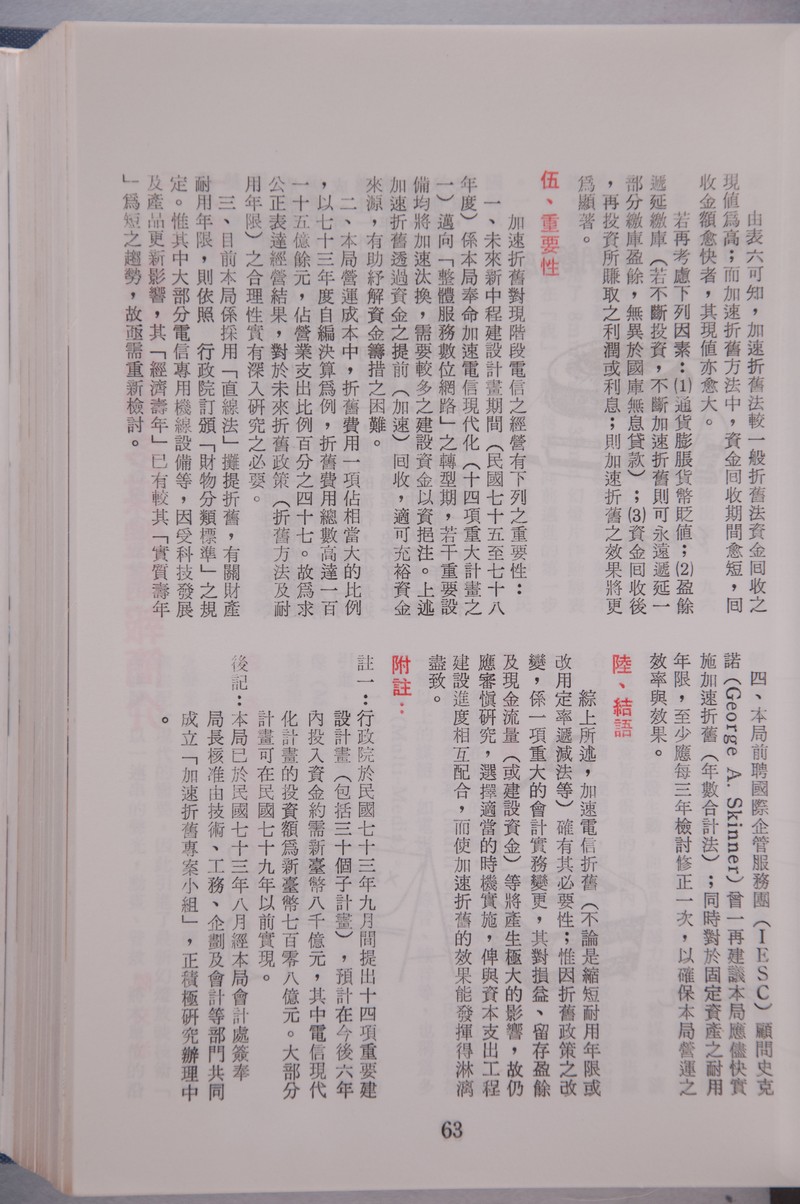 由表六可知，加速折舊法較一般折舊法資金回收之
現值爲高；而加速折舊方法中，資金回收期間愈短，回
收金額愈快者，其現值亦愈大。
若再考慮下列因素：⑴通貨膨脹貨幣貶値；⑵盈餘
遞延繳庫（若不斷投資，不斷加速折舊則可永遠遞延一
部分繳庫盈餘，無異於國庫無息貸款）；⑶資金回收後
，再投資所賺取之利潤或利息；則加速折舊之效果將更
爲顯著。
伍、重要性
加速折舊對現階段電信之經營有下列之重要性：
一、未來新中程建設計畫期間（民國七十五至七十八
年度）係本局奉命加速電信現代化（十四項重大計畫之
一）邁向「整體服務數位網路」之轉型期，若干重要設
備均將加速汰換，需要較多之建設資金以資挹注。上述
加速折舊透過資金之提前（加速）回收，適可充裕資金
來源，有助紓解資金籌措之困難。
二、本局營運成本中，折舊費用一項佔相當大的比例
，以七十三年度自編決算爲例，折舊費用總數高達一百
一十五億餘元，佔營業支出比例百分之四十七。故爲求
公正表達經營結果，對於未來折舊政策（折舊方法及耐
用年限）之合理性實有深入研究之必要。
三、目前本局係採用「直線法」攤提折舊，有關財產
耐用年限，則依照　行政院訂頒「財物分類標準」之規
定。惟其中大部分電信專用機線設備等，因受科技發展
及產品更新影響，其「經濟壽年」已有較其「實質壽年
」爲短之趨勢，故亟需重新檢討。
四、本局前聘國際企管服務團（IESC）顧問史克
諾（George A. Skinner）曾一再建議本局應儘快實
施加速折舊（年數合計法）；同時對於固定資產之耐用
年限，至少應每三年檢討修正一次，以確保本局營運之
效率與效果。
陸、結語
綜上所述，加速電信折舊（不論是縮短耐用年限或
改用定率遞減法等）確有其必要性；惟因折舊政策之改
變，係一項重大的會計實務變更，其對損益、留存盈餘
及現金流量（或建設資金）等將產生極大的影響，故仍
應審慎研究，選擇適當的時機實施，俾與資本支出工程
建設進度相互配合，而使加速折舊的效果能發揮得淋漓
盡致。
附註：
註一：行政院於民國七十三年九月間提出十四項重要建
設計畫（包括三十個子計畫），預計在今後六年
內投入資金約需新臺幣八千億元，其中電信現代
化計畫的投資額爲新臺幣七百零八億元。大部分
計畫可在民國七十九年以前實現。
後記：本局已於民國七十三年八月經本局會計處簽奉
局長核准由技術、工務、企劃及會計等部門共同
成立「加速折舊專案小組」，正積極研究辦理中
。
63